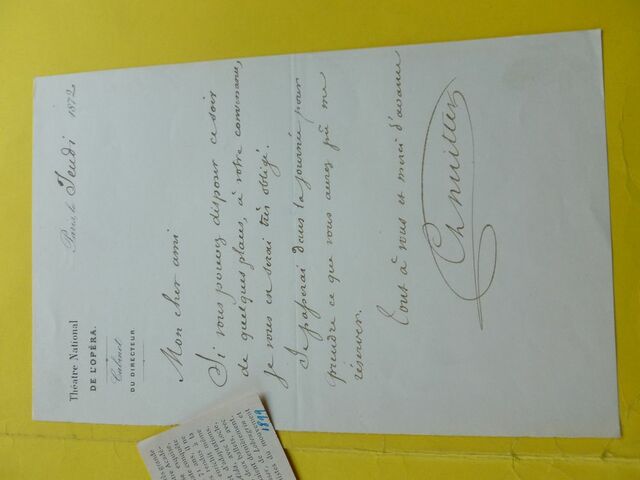 Théatre National
DE L'OPÉRA.
Cabinet
DU DIRECTEUR
Paris, le Jeudi 1872
Mon cher ami
Si vous pouvez disposer ce soir
de quelques places, à votre convenance,
je vous en serai très obligé.
Je passerai dans la journée pour
prendre ce que vous aurez pu me
réserver.
Tout à vous et merci d'avance
Ch Nuitter
1899